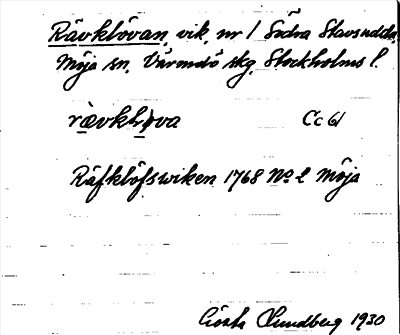 Rävklövan, vik, nr 1 Södra Stavsudda,
Möja sn, Värmdö skg, Stockholms l.
rävkløva Cc 61
Räfklöfswiken 1768 No 2 Möja
Gösta Lundberg 1930